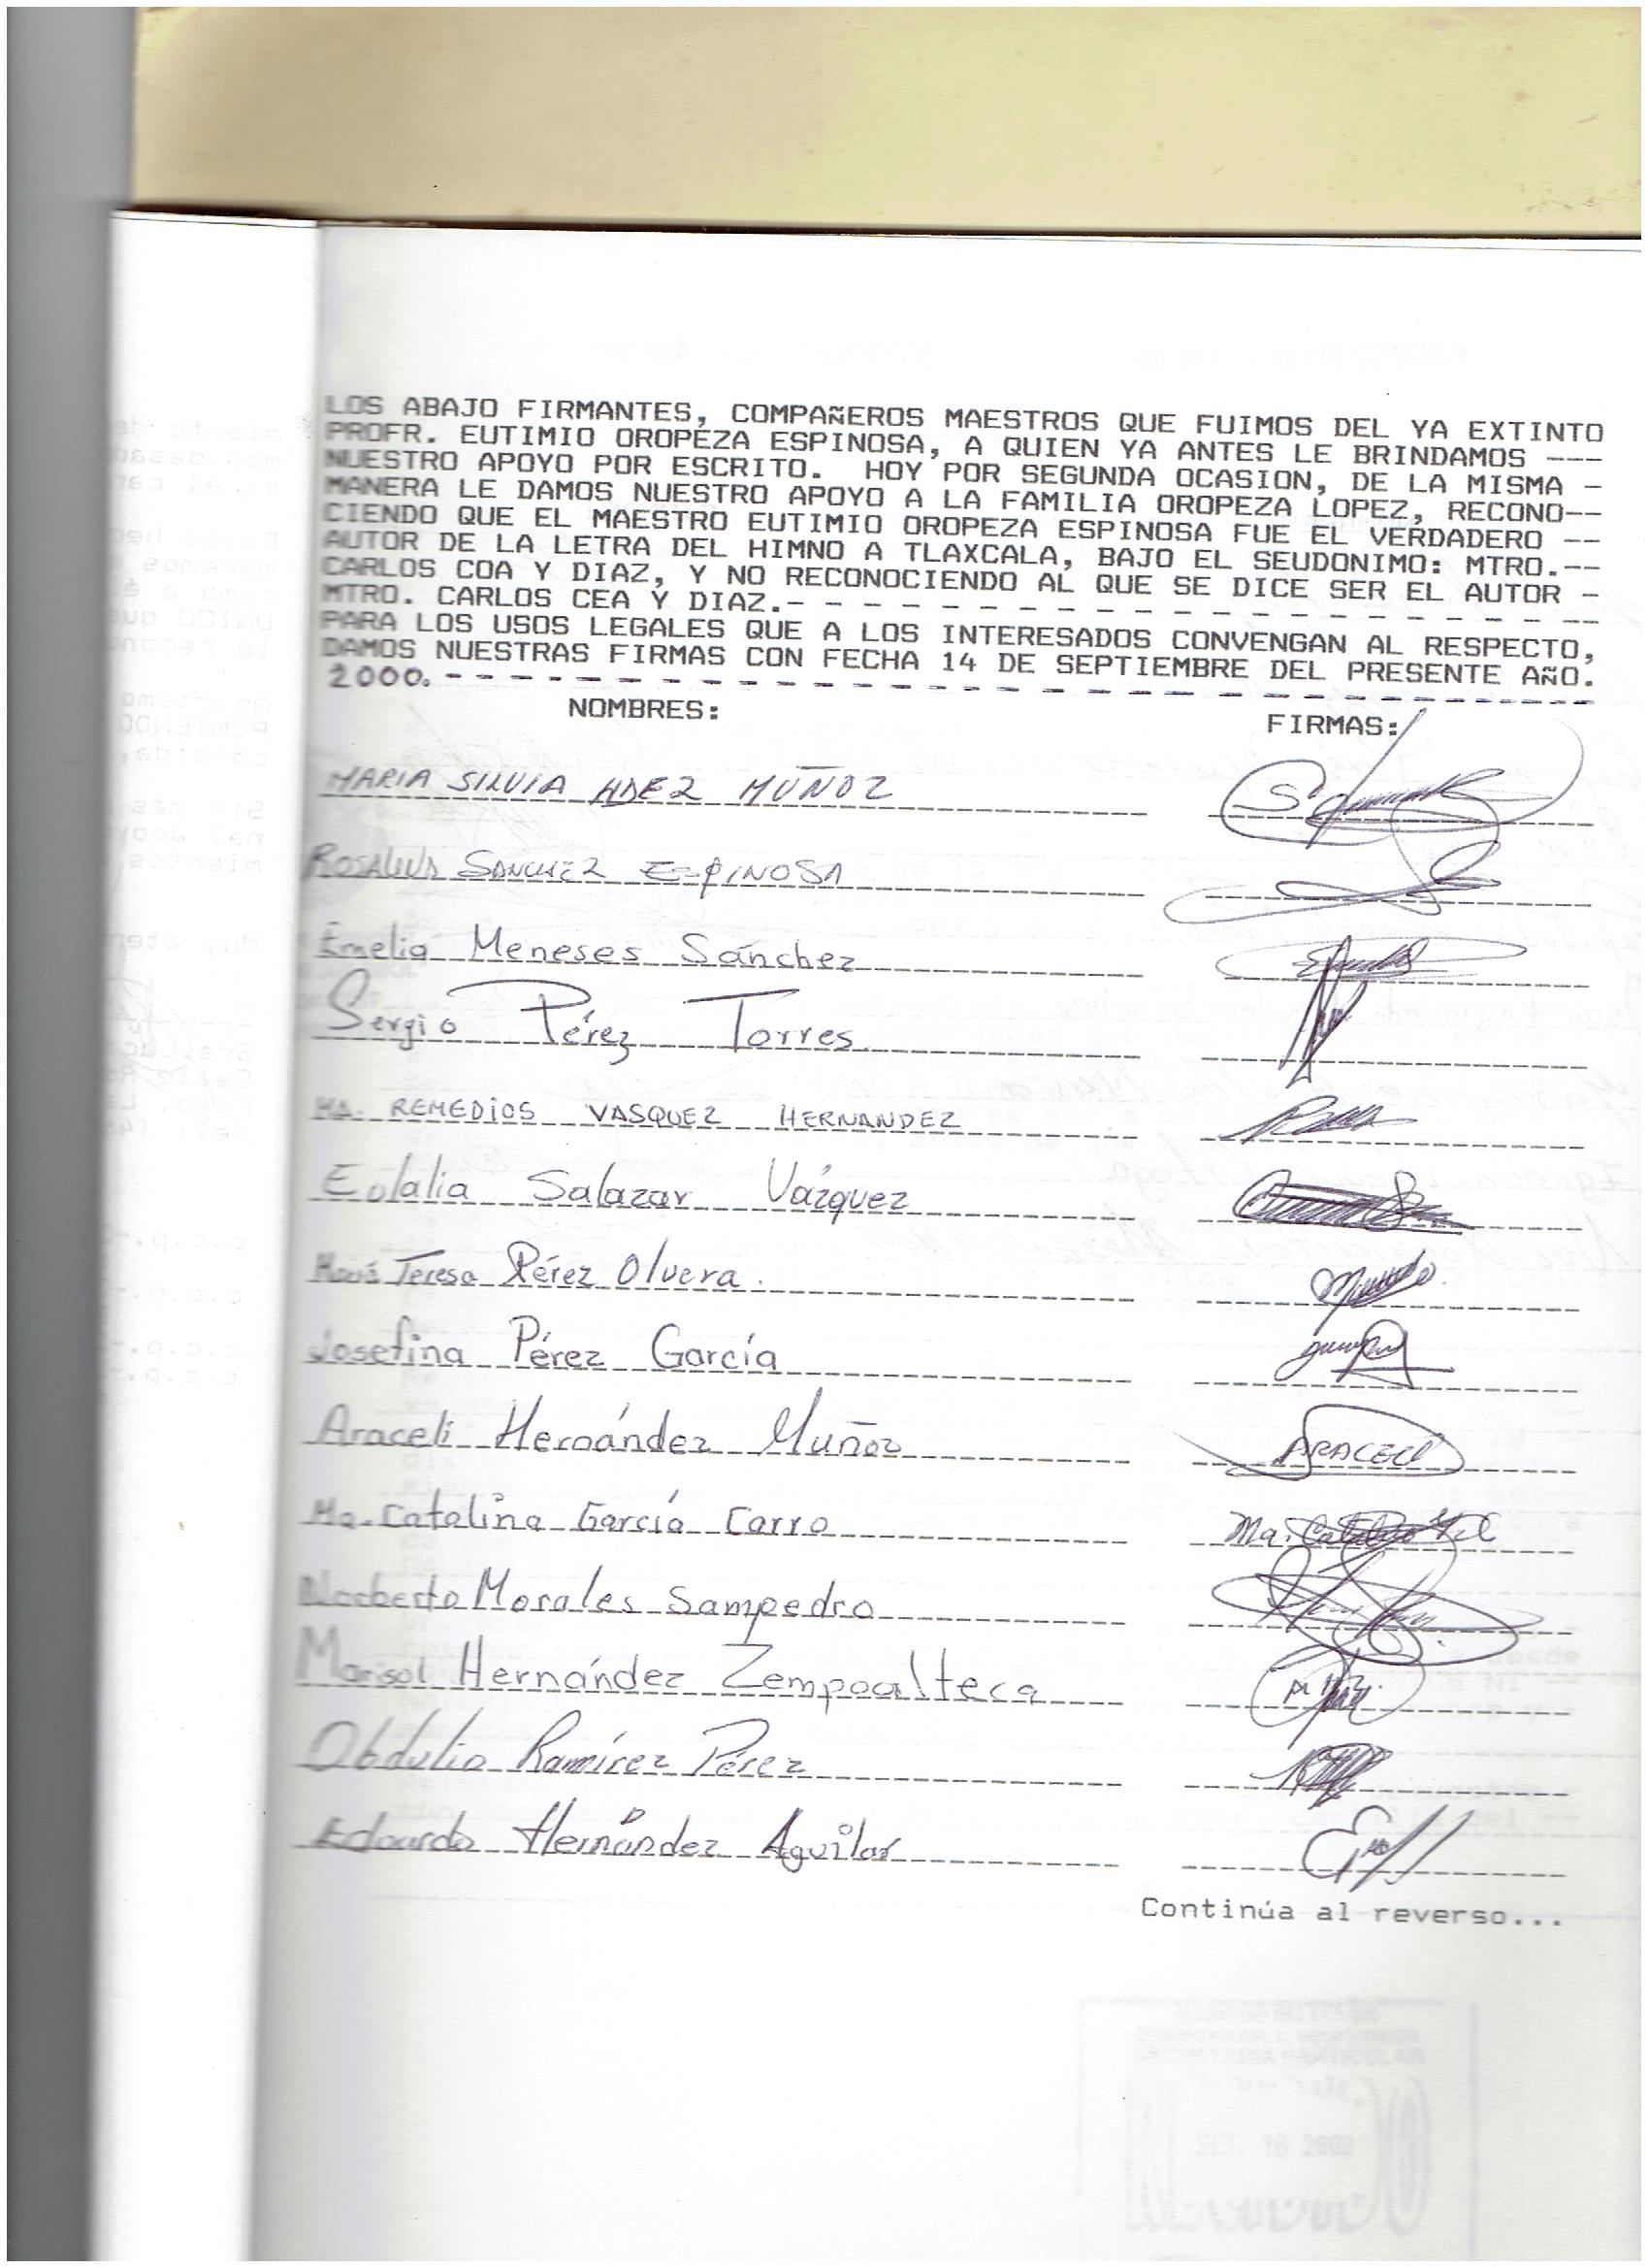 LOS ABAJO FIRMANTES, COMPAÑEROS MAESTROS QUE FUIMOS DEL YA EXTINTO
PROFR. EUTIMIO OROPEZA ESPINOSA, A QUIEN YA ANTES LE BRINDAMOS ---
NUESTRO APOYO POR ESCRITO. HOY POR SEGUNDA OCASION, DE LA MISMA -
MANERA LE DAMOS NUESTRO APOYO A LA FAMILIA OROPEZA LOPEZ, RECONO--
CIENDO QUE EL MAESTRO EUTIMIO OROPEZA ESPINOSA FUE EL VERDADERO --
AUTOR DE LA LETRA DEL HIMNO A TLAXCALA, BAJO EL SEUDONIMO: MTRO.--
CARLOS COA Y DIAZ, Y NO RECONOCIENDO AL QUE SE DICE SER EL AUTOR -
MTRO. CARLOS CEA Y DIAZ.- - - - - - - - - - - - - - - - - - - - --
PARA LOS USOS LEGALES QUE A LOS INTERESADOS CONVENGAN AL RESPECTO,
DAMOS NUESTRAS FIRMAS CON FECHA 14 DE SEPTIEMBRE DEL PRESENTE AÑO.
2000.- - - - - - - - - - - - - - - - - - - - - - - - - - - - - - -
NOMBRES: FIRMAS:
MARIA SILVIA HDEZ MUÑOZ
ROSALUVA SANCHEZ ESPINOSA
Emelia Meneses Sánchez
Sergio Pérez Torres
MA. REMEDIOS VASQUEZ HERNANDEZ
Eulalia Salazar Vázquez
María Teresa Pérez Olvera.
Josefina Pérez García
Araceli Hernández Muñoz ARACELI
Ma. Catalina García Carro Ma. Catalina
Norberto Morales Sampedro
Marisol Hernández Zempoalteca
Obdulio Ramírez Pérez
Eduardo Hernández Aguilar
Continúa al reverso...
SET. 18 2000